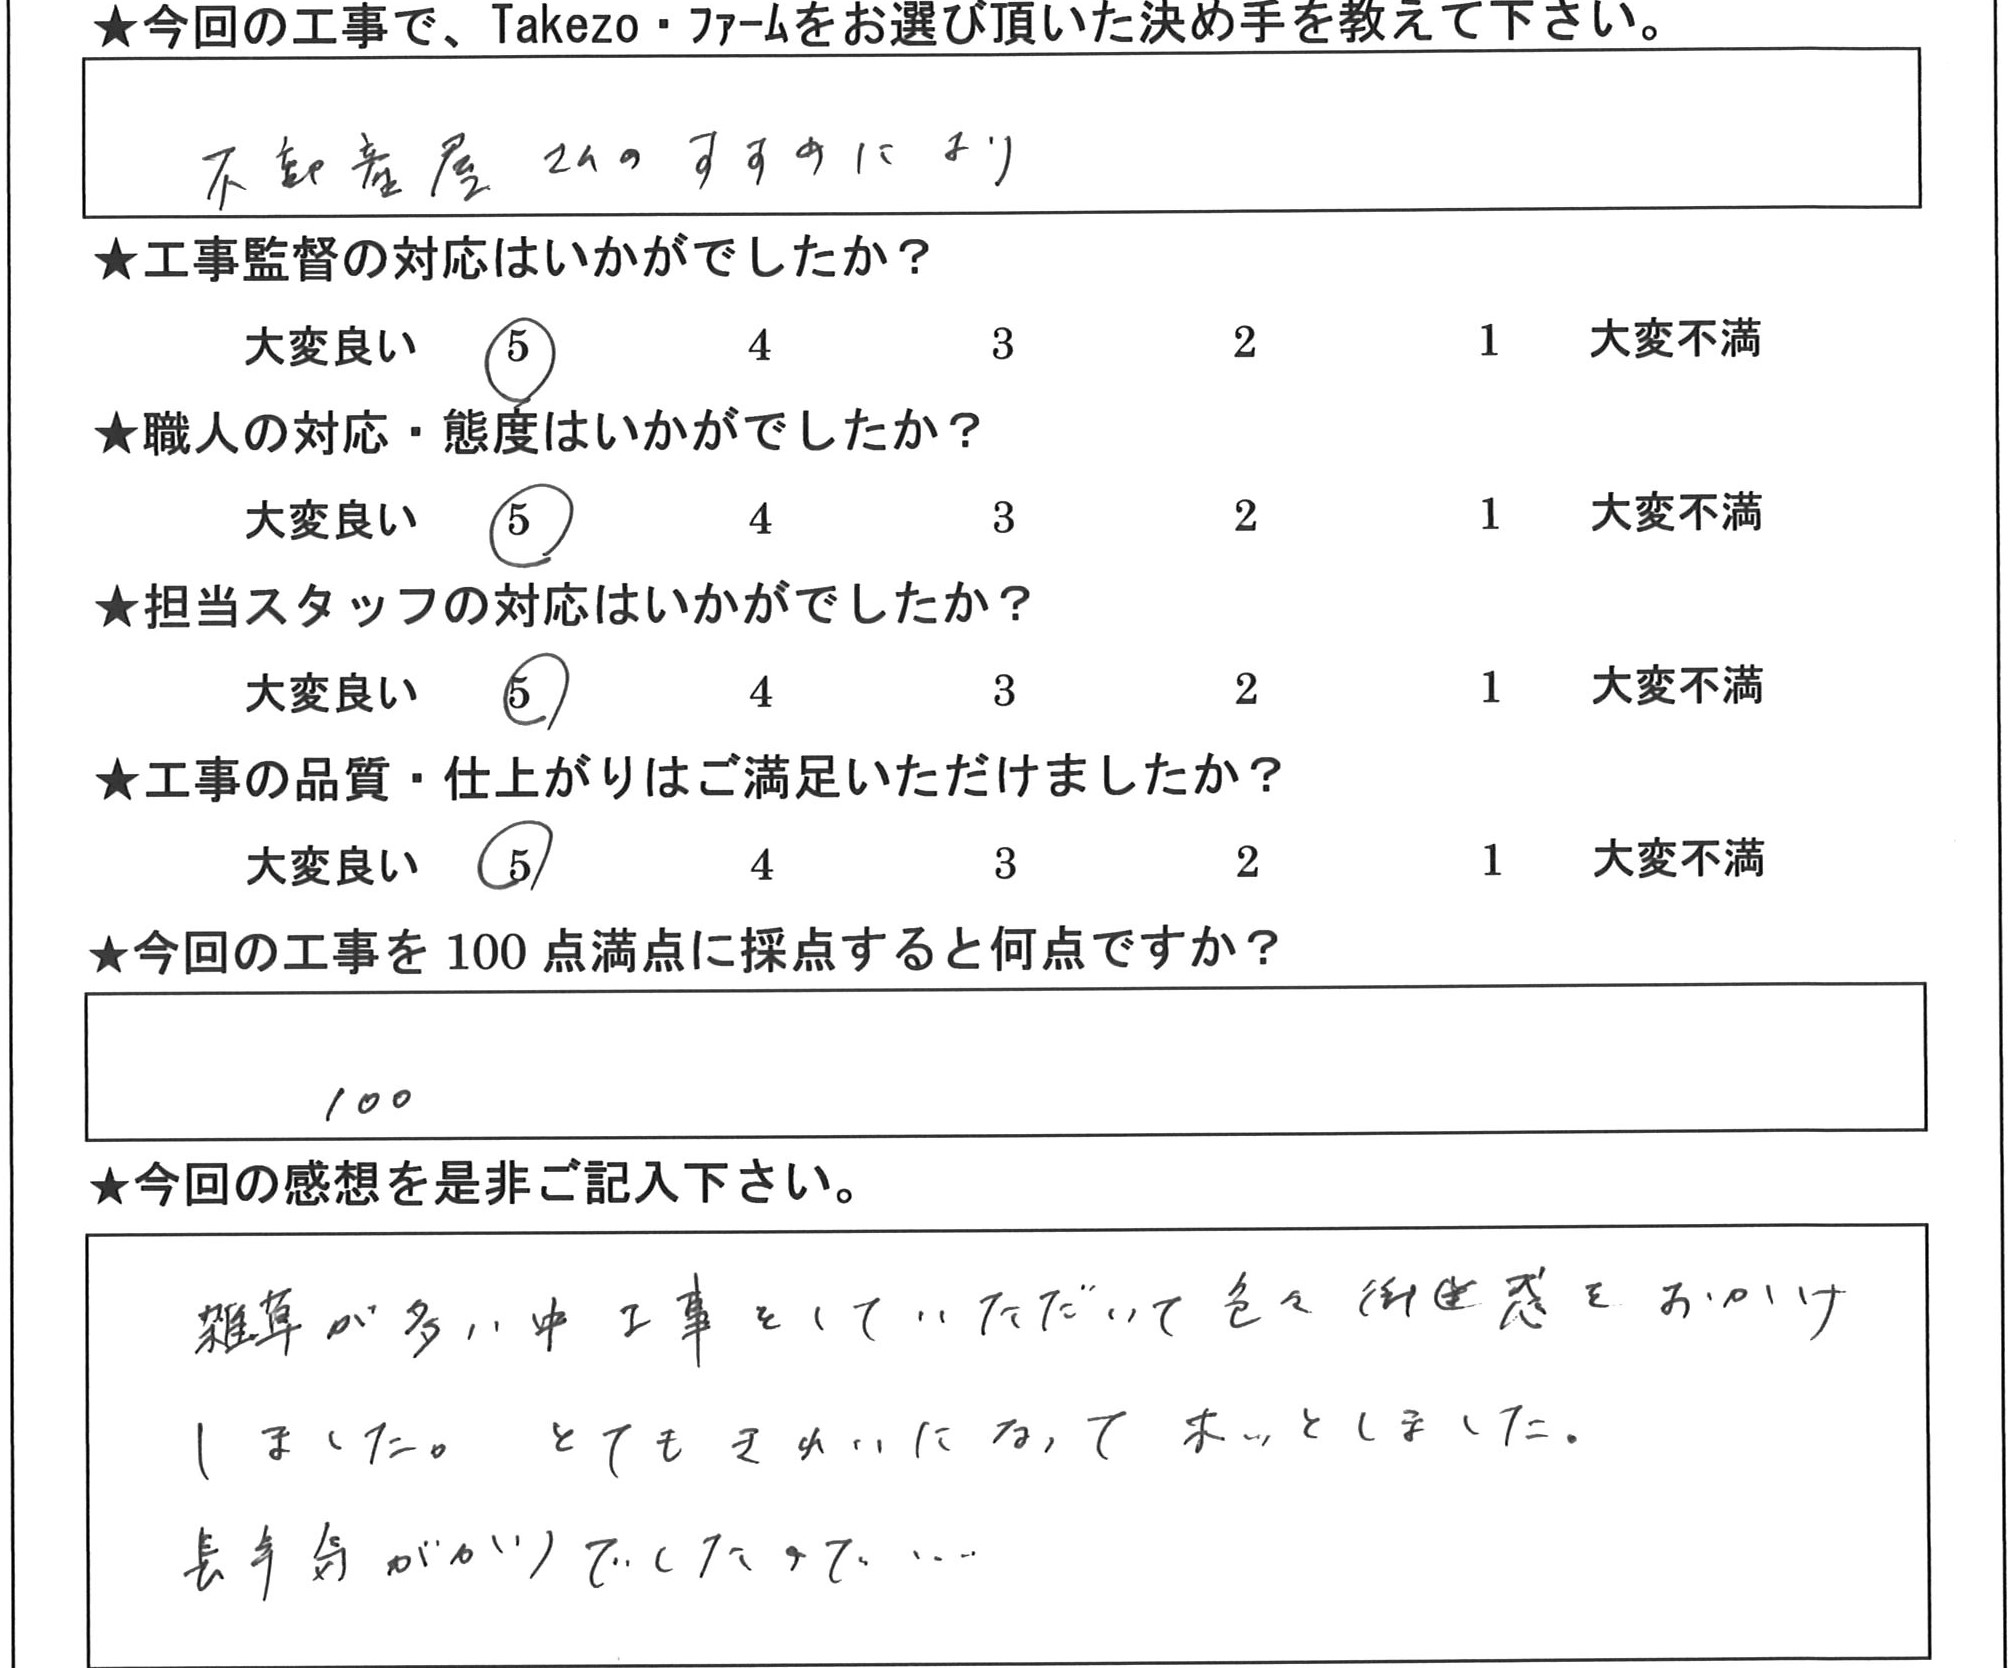 ★今回の工事で、Takezo・ファームをお選び頂いた決め手を教えて下さい。
不動産屋さんのすすめにより
★工事監督の対応はいかがでしたか？
大変良い 5 4 3 2 1 大変不満
★職人の対応・態度はいかがでしたか？
大変良い 5 4 3 2 1 大変不満
★担当スタッフの対応はいかがでしたか？
大変良い 5 4 3 2 1 大変不満
★工事の品質・仕上がりはご満足いただけましたか？
大変良い 5 4 3 2 1 大変不満
★今回の工事を 100 点満点に採点すると何点ですか？
100
★今回の感想を是非ご記入下さい。
雑草が多い中工事をしていただいて色々御迷惑をおかけ
しました。 とてもきれいになってホッとしました。
長年気がかりでしたので・・・・